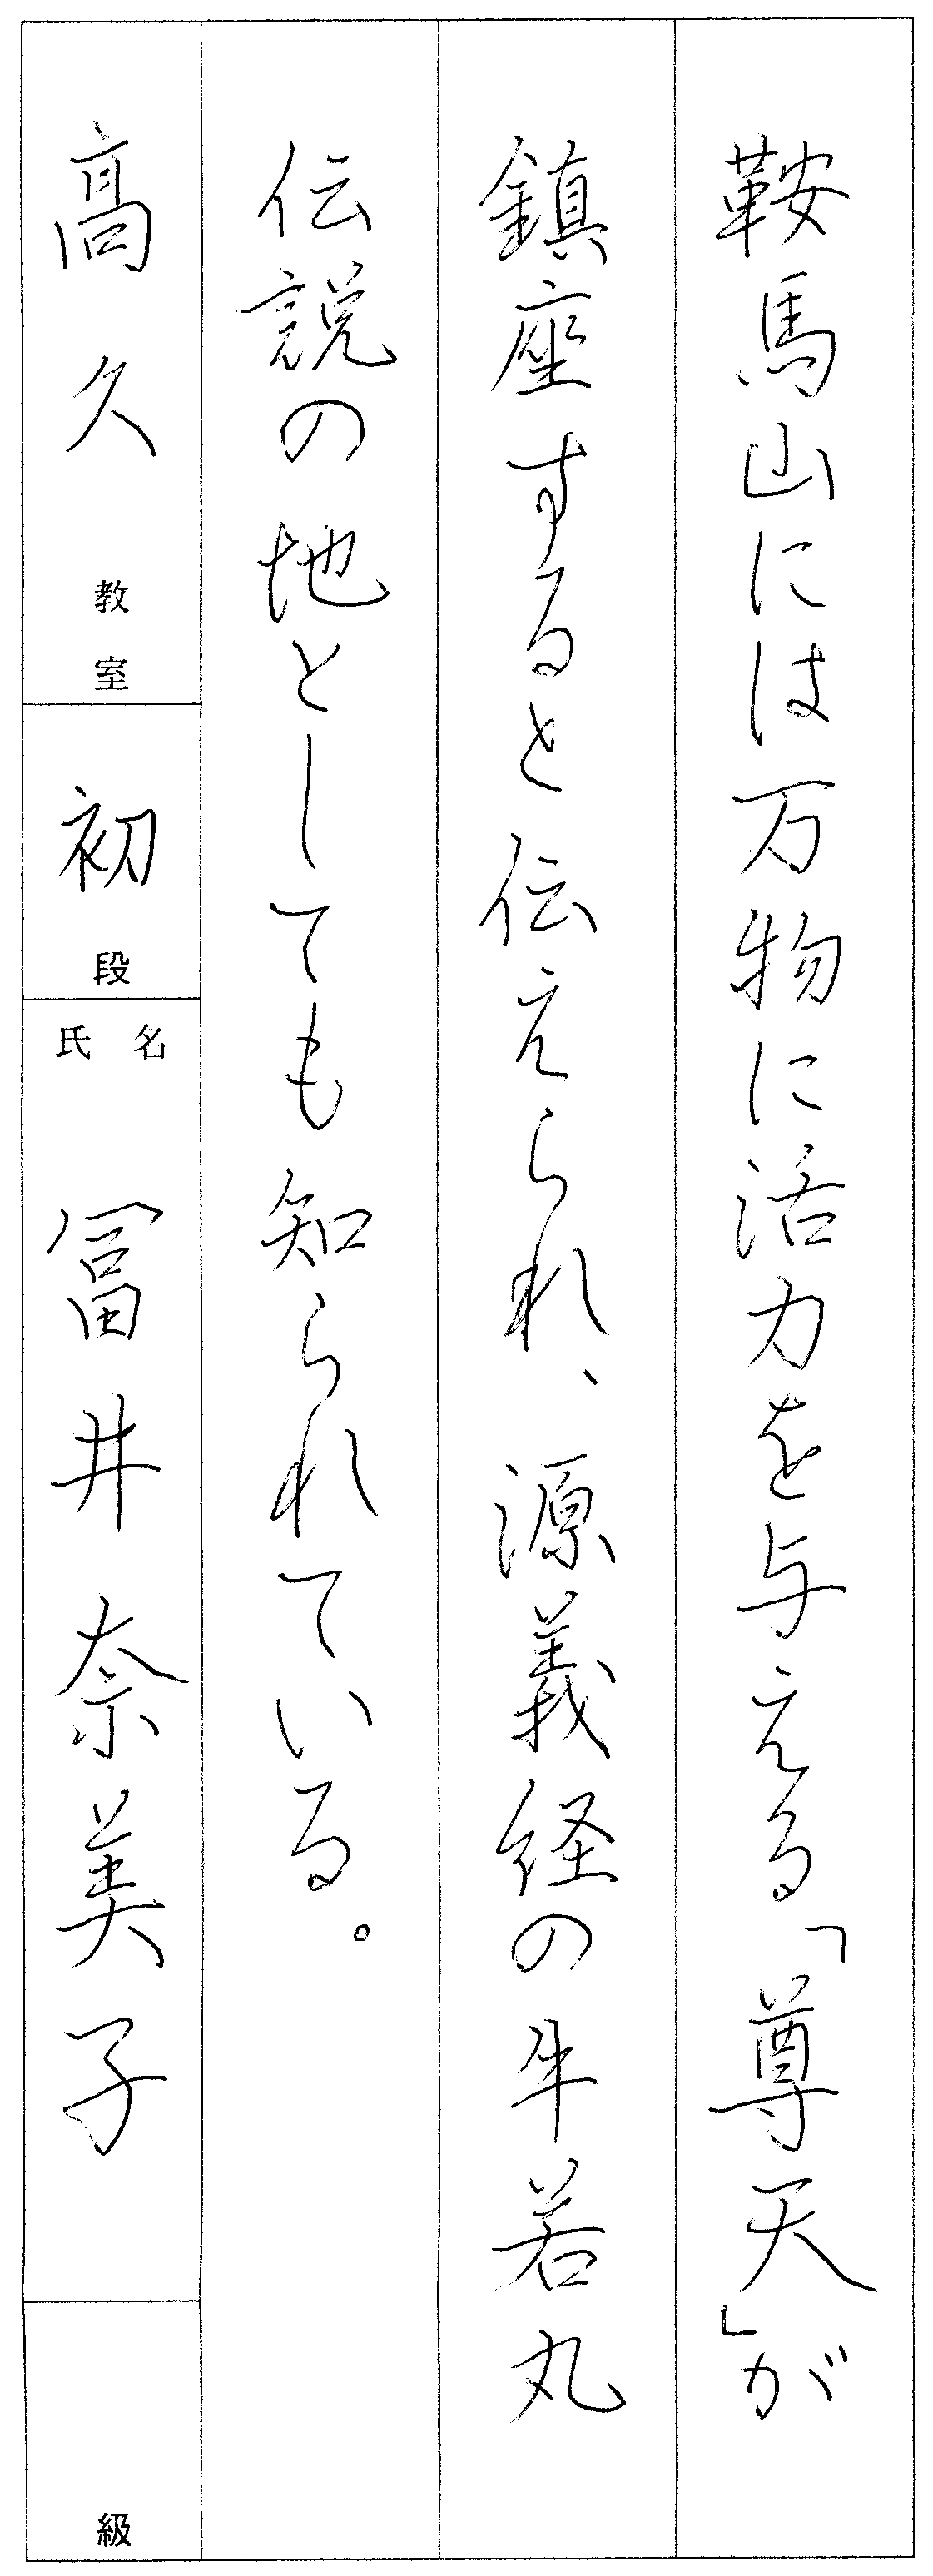 鞍馬山には万物に活力を与える「尊天」が
鎮座すると伝えられ、源義経の牛若丸
伝説の地としても知られている。
高久教室
初段
氏名
冨井奈美子
級